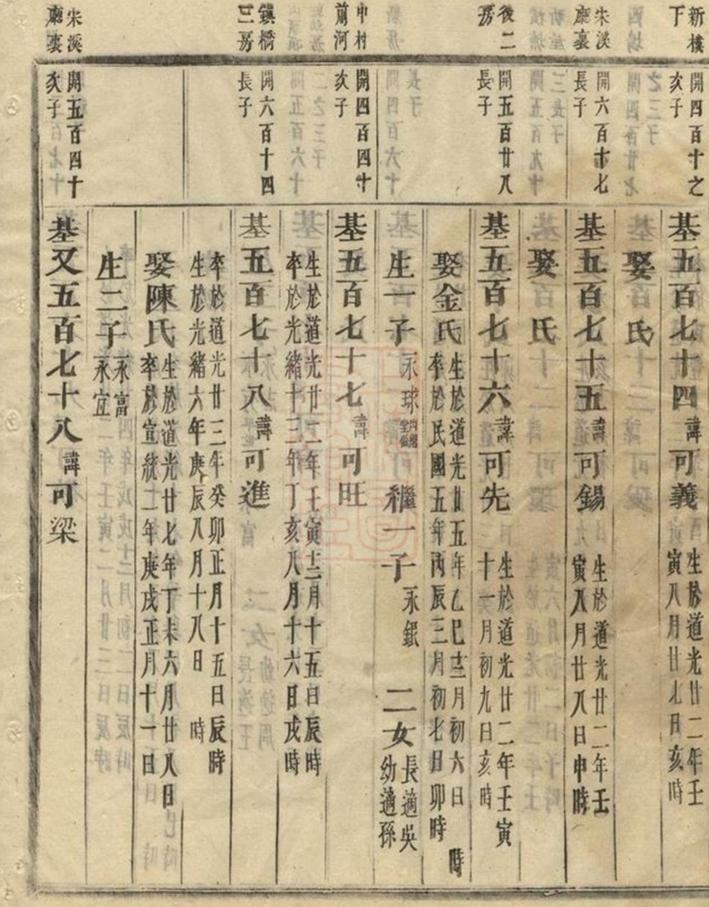 新樓下
開四百十之次子
基五百七十四諱可義
生於道光廿二年壬
寅八月廿七日亥時
娶 氏
朱溪廳裏
開六百十七長子
基五百七十五諱可錫
生於道光廿二年壬
寅八月廿八日申時
娶 氏
後二房
開五百廿八長子
基五百七十六諱可先
生於道光廿二年壬寅
十一月初九日亥時
娶金氏
生於道光廿五年乙巳十二月初六日 時
卒於民國五年丙辰三月初七日卯時
生一子永球 繼一子永銀 二女長適吳幼適孫
中村前河
開四百四十次子
基五百七十七諱可旺
生於道光廿二年壬寅十二月十五日辰時
卒於光緒十三年丁亥八月十六日戌時
鎮橋三房
開六百十四長子
基五百七十八諱可進
生於道光廿三年癸卯正月十五日辰時
卒於光緒六年庚辰八月十八日 時
娶陳氏
生於道光廿七年丁未六月廿八日
卒於宣統二年庚戌正月十一日
生二子永富永宜
朱溪廳裏
開五百四十次子
基又五百七十八諱可梁